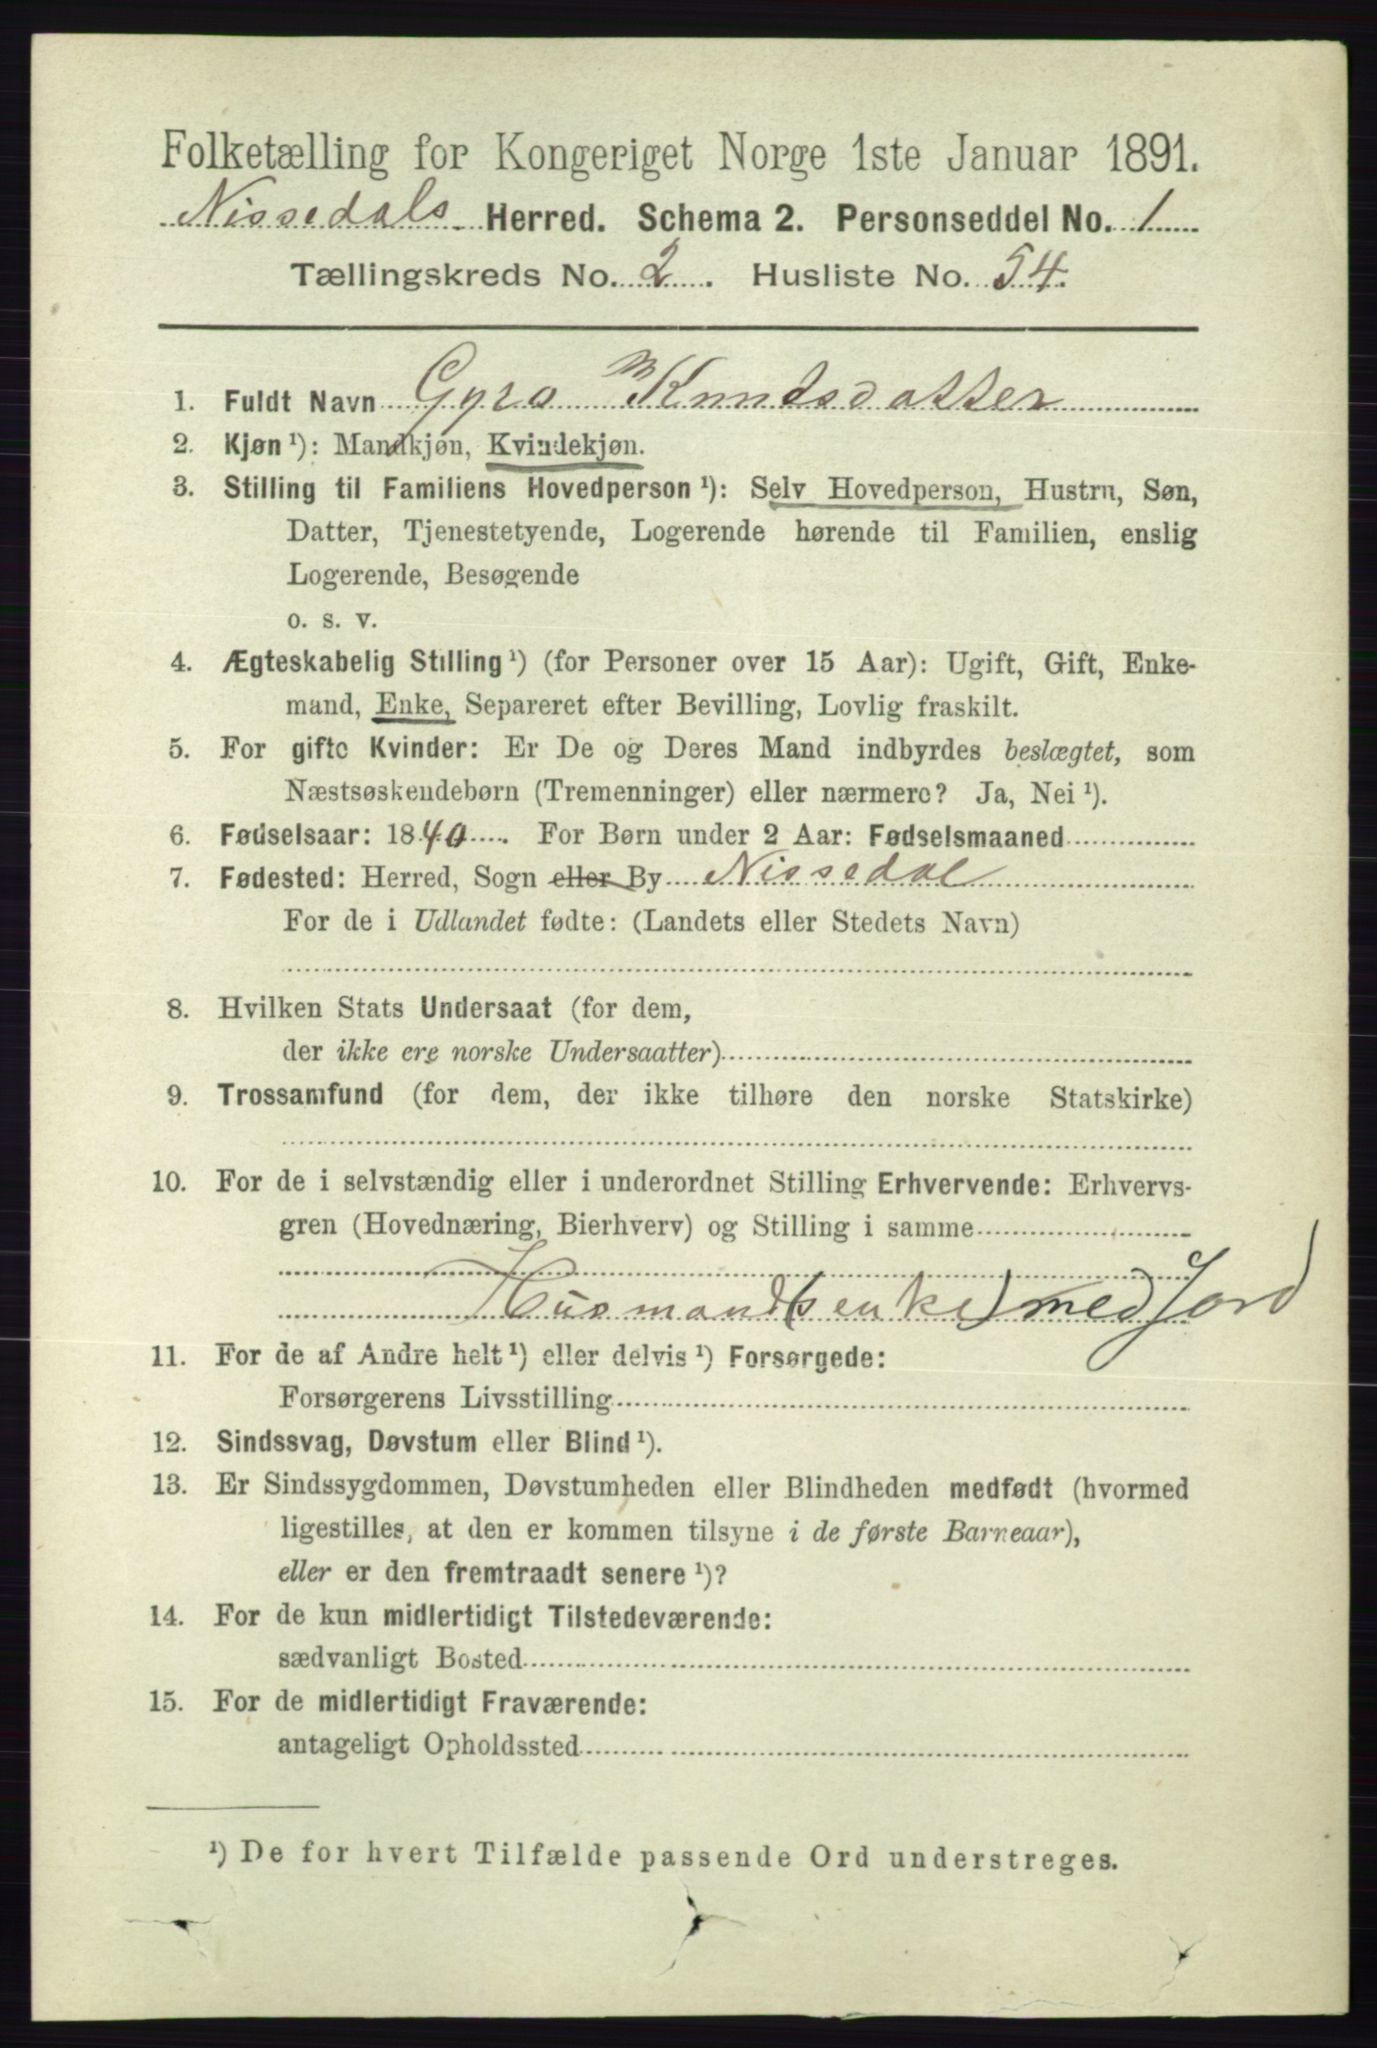 Folketælling for Kongeriget Norge 1ste Januar 1891.
Nissedals Herred. Schema 2. Personseddel No. 1
Tællingskreds No. 2. Husliste No. 54.
1. Fuldt Navn Gyro Knudsdatter
2. Kjøn ¹): Mandkjøn, Kvindekjøn.
3. Stilling til Familiens Hovedperson ¹): Selv Hovedperson, Hustru, Søn,
Datter, Tjenestetyende, Logerende hørende til Familien, enslig
Logerende, Besøgende
o. s. v.
4. Ægteskabelig Stilling ¹) (for Personer over 15 Aar): Ugift, Gift, Enke-
mand, Enke, Separeret efter Bevilling, Lovlig fraskilt.
5. For gifte Kvinder: Er De og Deres Mand indbyrdes beslægtet, som
Næstsøskendebørn (Tremenninger) eller nærmere? Ja, Nei ¹).
6. Fødselsaar: 1840. For Børn under 2 Aar: Fødselsmaaned
7. Fødested: Herred, Sogn eller By Nissedal
For de i Udlandet fødte: (Landets eller Stedets Navn)
8. Hvilken Stats Undersaat (for dem,
der ikke ere norske Undersaatter)
9. Trossamfund (for dem, der ikke tilhøre den norske Statskirke)
10. For de i selvstændig eller i underordnet Stilling Erhvervende: Erhvervs-
gren (Hovednæring, Bierhverv) og Stilling i samme
Husmand(senke) med Jord
11. For de af Andre helt ¹) eller delvis ¹) Forsørgede:
Forsørgerens Livsstilling
12. Sindssvag, Døvstum eller Blind ¹).
13. Er Sindssygdommen, Døvstumheden eller Blindheden medfødt (hvormed
ligestilles, at den er kommen tilsyne i de første Barneaar),
eller er den fremtraadt senere ¹)?
14. For de kun midlertidigt Tilstedeværende:
sædvanligt Bosted
15. For de midlertidigt Fraværende:
antageligt Opholdssted
¹) De for hvert Tilfælde passende Ord understreges.